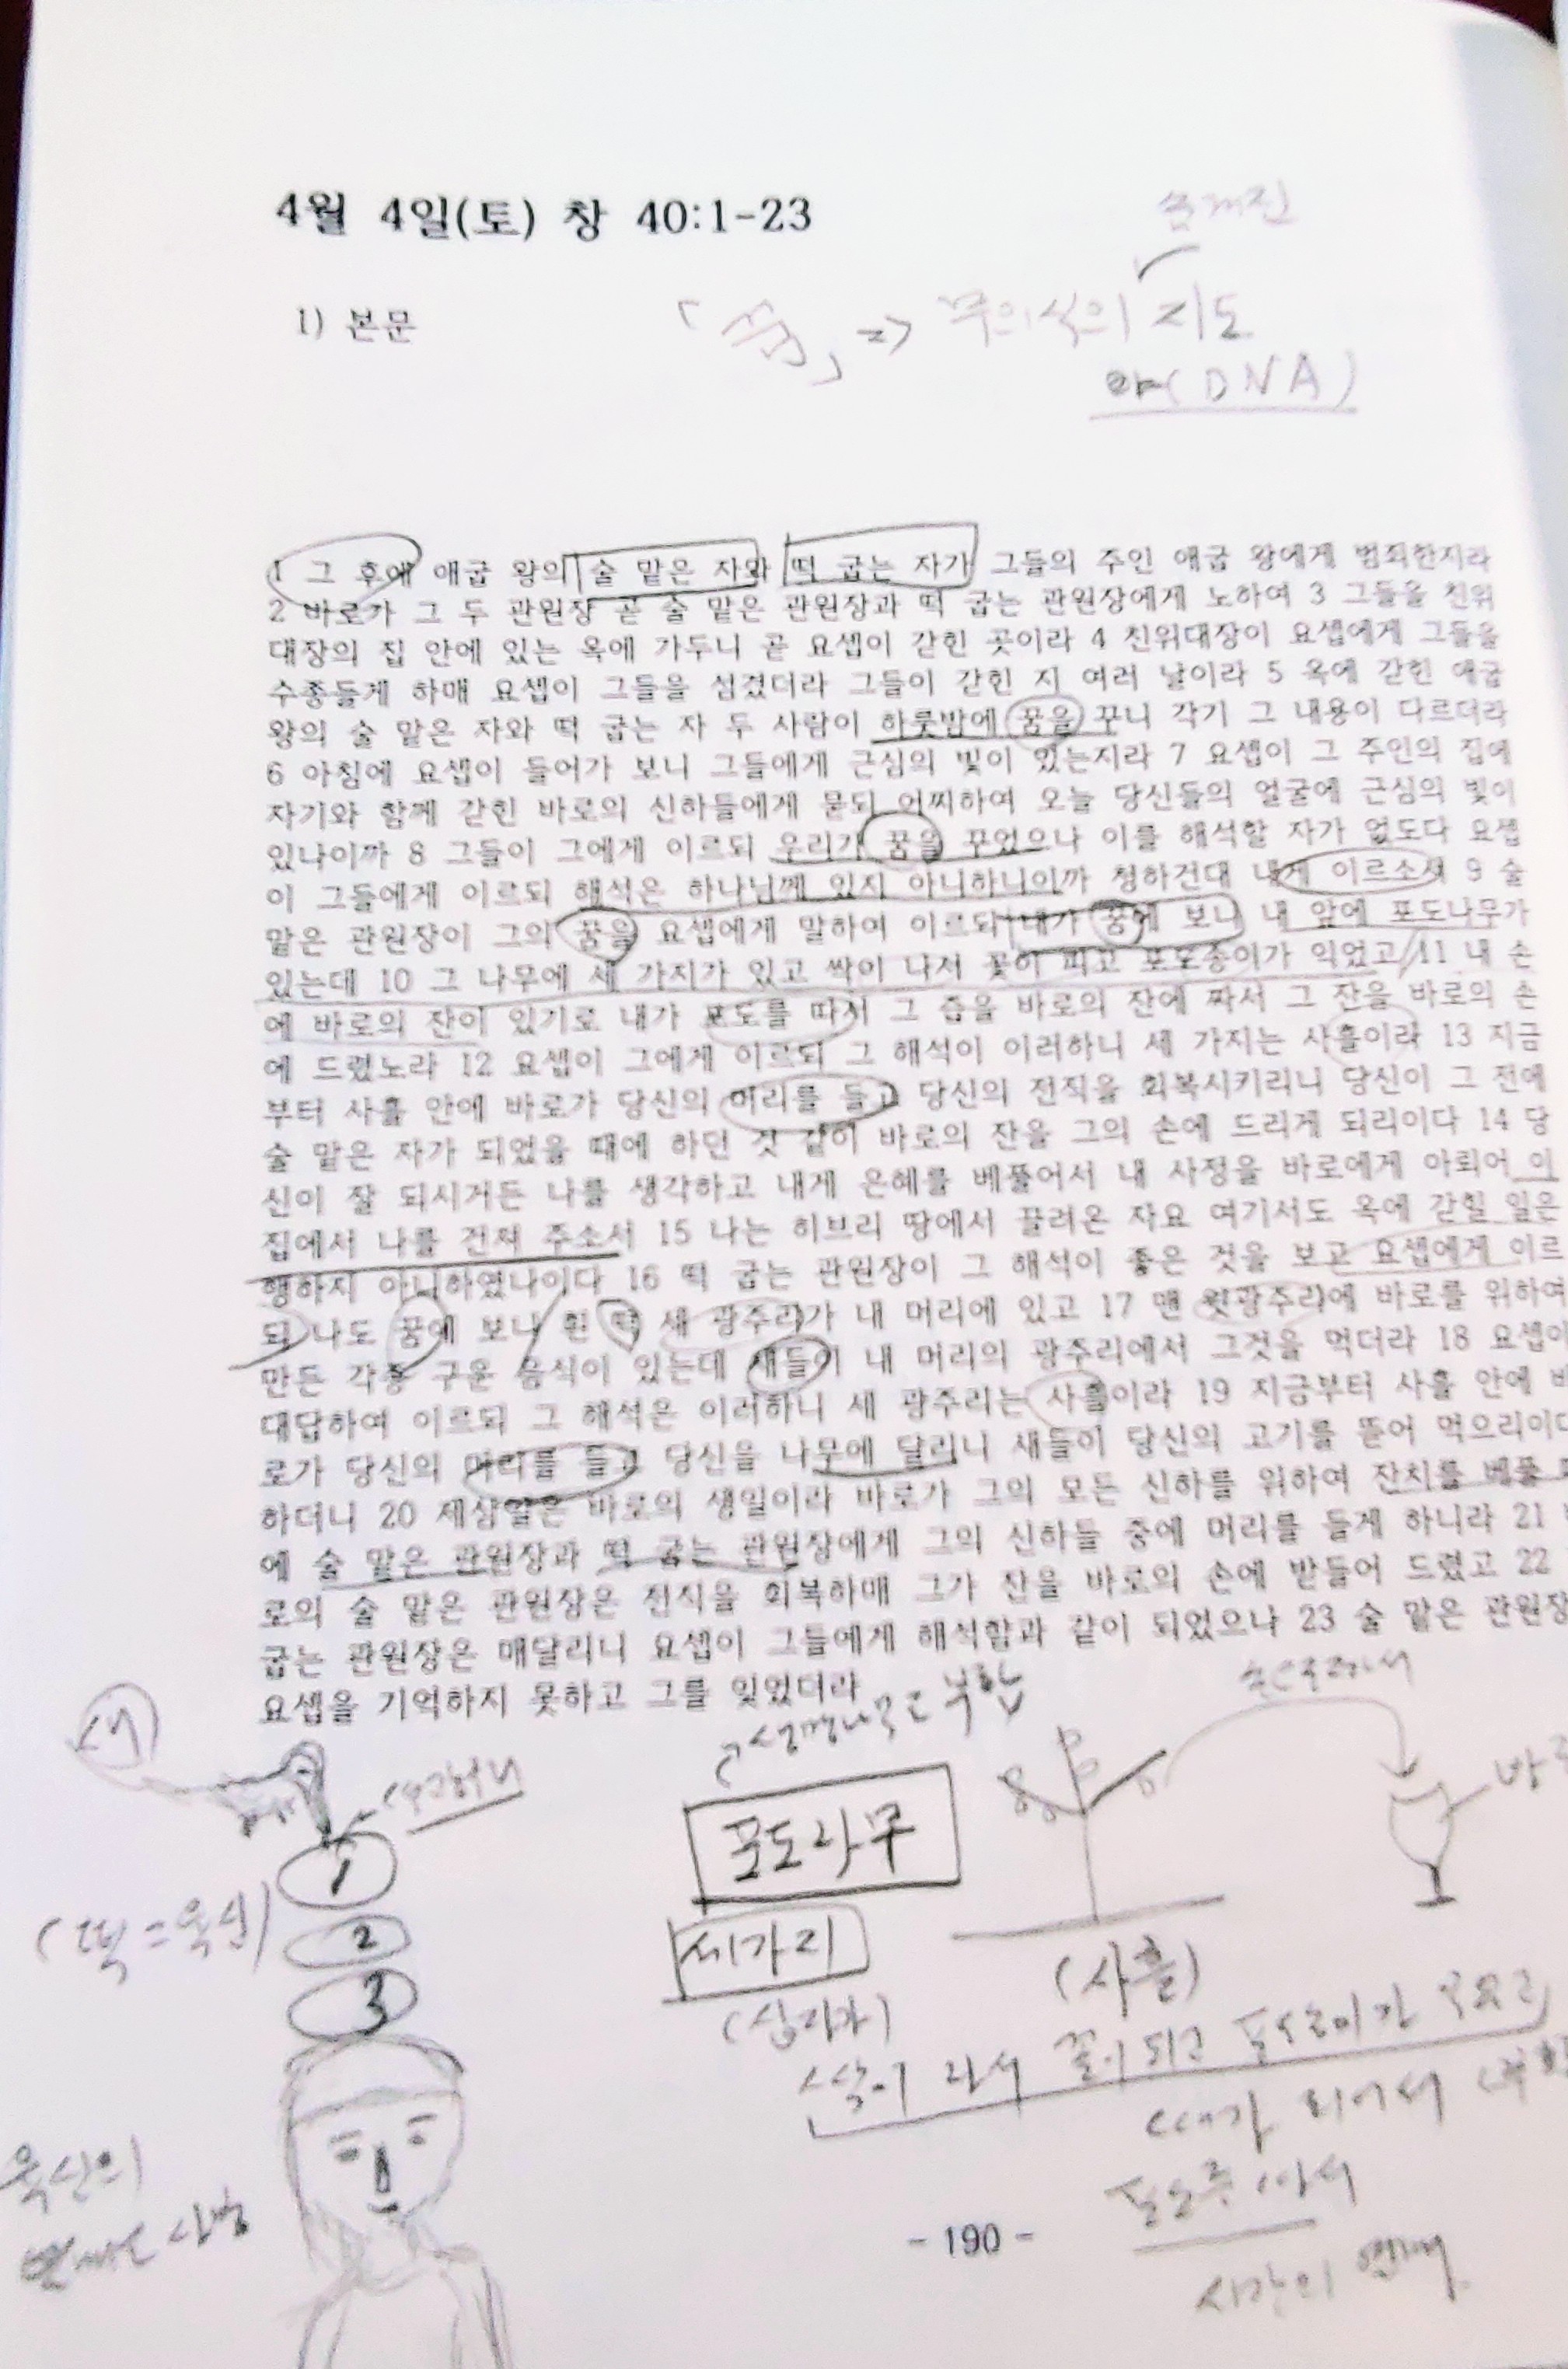 4월 4일(토) 창 40:1-23
숨겨진
1) 본문
「꿈」 => 무의식의 지도
(DNA)
1 그 후에 애굽 왕의 술 맡은 자와 떡 굽는 자가 그들의 주인 애굽 왕에게 범죄한지라
2 바로가 그 두 관원장 곧 술 맡은 관원장과 떡 굽는 관원장에게 노하여 3 그들을 친위
대장의 집 안에 있는 옥에 가두니 곧 요셉이 갇힌 곳이라 4 친위대장이 요셉에게 그들을
수종들게 하매 요셉이 그들을 섬겼더라 그들이 갇힌 지 여러 날이라 5 옥에 갇힌 애굽
왕의 술 맡은 자와 떡 굽는 자 두 사람이 하룻밤에 꿈을 꾸니 각기 그 내용이 다르더라
6 아침에 요셉이 들어가 보니 그들에게 근심의 빛이 있는지라 7 요셉이 그 주인의 집에
자기와 함께 갇힌 바로의 신하들에게 묻되 어찌하여 오늘 당신들의 얼굴에 근심의 빛이
있나이까 8 그들이 그에게 이르되 우리가 꿈을 꾸었으나 이를 해석할 자가 없도다 요셉
이 그들에게 이르되 해석은 하나님께 있지 아니하니이까 청하건대 내게 이르소서 9 술
맡은 관원장이 그의 꿈을 요셉에게 말하여 이르되 내가 꿈에 보니 내 앞에 포도나무가
있는데 10 그 나무에 세 가지가 있고 싹이 나서 꽃이 피고 포도송이가 익었고 11 내 손
에 바로의 잔이 있기로 내가 포도를 따서 그 즙을 바로의 잔에 짜서 그 잔을 바로의 손
에 드렸노라 12 요셉이 그에게 이르되 그 해석이 이러하니 세 가지는 사흘이라 13 지금
부터 사흘 안에 바로가 당신의 머리를 들고 당신의 전직을 회복시키리니 당신이 그 전에
술 맡은 자가 되었을 때에 하던 것 같이 바로의 잔을 그의 손에 드리게 되리이다 14 당
신이 잘 되시거든 나를 생각하고 내게 은혜를 베풀어서 내 사정을 바로에게 아뢰어 이
집에서 나를 건져 주소서 15 나는 히브리 땅에서 끌려온 자요 여기서도 옥에 갇힐 일은
행하지 아니하였나이다 16 떡 굽는 관원장이 그 해석이 좋은 것을 보고 요셉에게 이르
되 나도 꿈에 보니 흰 떡 세 광주리가 내 머리에 있고 17 맨 윗광주리에 바로를 위하여
만든 각종 구운 음식이 있는데 새들이 내 머리의 광주리에서 그것을 먹더라 18 요셉이
대답하여 이르되 그 해석은 이러하니 세 광주리는 사흘이라 19 지금부터 사흘 안에
로가 당신의 머리를 들고 당신을 나무에 달리니 새들이 당신의 고기를 뜯어 먹으리이다
하더니 20 제삼일은 바로의 생일이라 바로가 그의 모든 신하를 위하여 잔치를 베풀
에 술 맡은 관원장과 떡 굽는 관원장에게 그의 신하들 중에 머리를 들게 하니라 21
로의 술 맡은 관원장은 전직을 회복하매 그가 잔을 바로의 손에 받들어 드렸고 22
굽는 관원장은 매달리니 요셉이 그들에게 해석함과 같이 되었으나 23 술 맡은 관원장
요셉을 기억하지 못하고 그를 잊었더라
새
부활
포도나무
1
(떡=육신)
2
세가리
3
(사흘)
(십자가)
싹이 나서 꽃이 되고 포도송이가
육신의
- 190 -
시간의